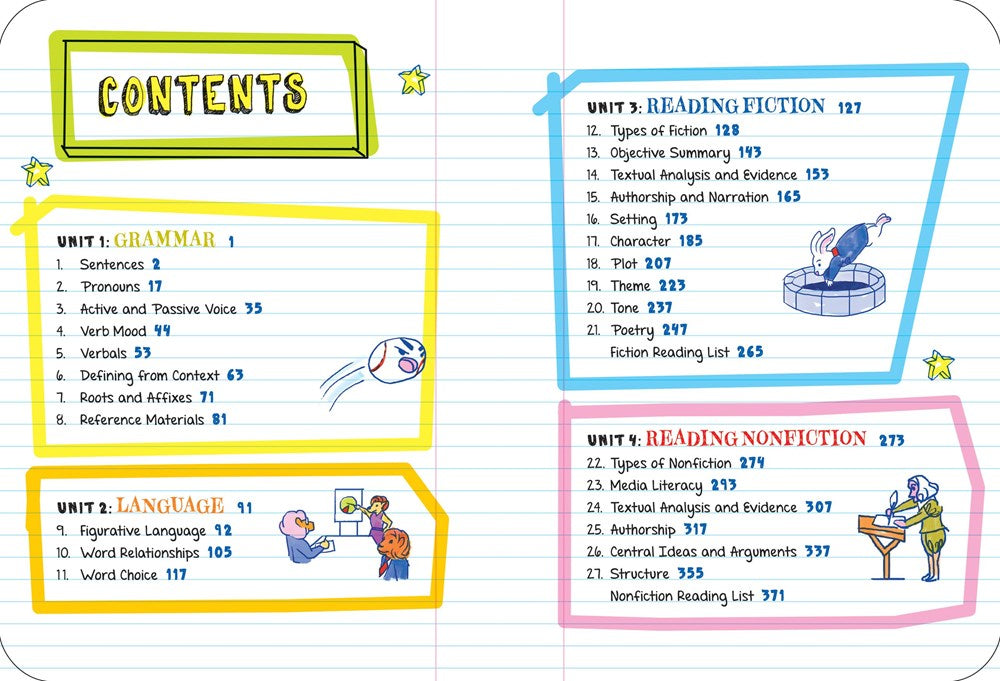 CONTENTS
UNIT 1: GRAMMAR 1
1. Sentences 2
2. Pronouns 17
3. Active and Passive Voice 35
4. Verb Mood 44
5. Verbals 53
6. Defining from Context 63
7. Roots and Affixes 71
8. Reference Materials 81
UNIT 2: LANGUAGE 91
9. Figurative Language 92
10. Word Relationships 105
11. Word Choice 117
UNIT 3: READING FICTION 127
12. Types of Fiction 128
13. Objective Summary 143
14. Textual Analysis and Evidence 153
15. Authorship and Narration 165
16. Setting 173
17. Character 185
18. Plot 207
19. Theme 223
20. Tone 237
21. Poetry 247
Fiction Reading List 265
UNIT 4: READING NONFICTION 273
22. Types of Nonfiction 274
23. Media Literacy 293
24. Textual Analysis and Evidence 307
25. Authorship 317
26. Central Ideas and Arguments 337
27. Structure 355
Nonfiction Reading List 371